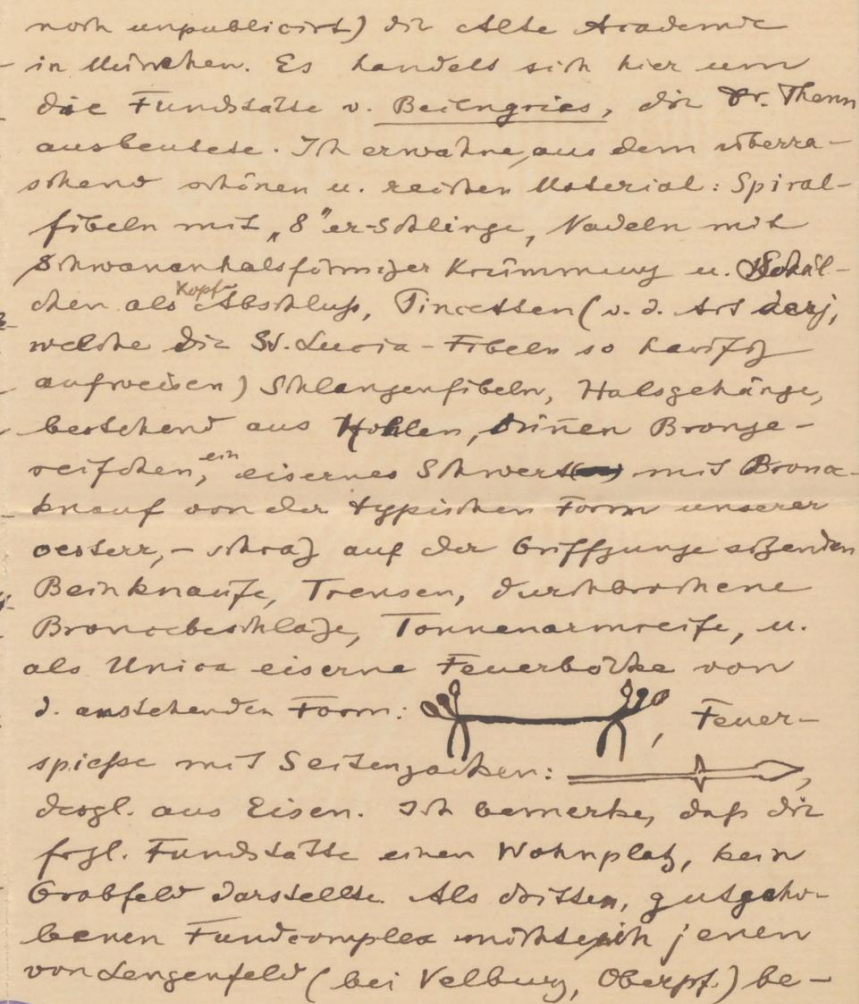 noch unpublicirt) die Alte Academie
in München. Es handelt sich hier um
die Fundstätte v. Beilngries, die Dr. Thenn
ausbeutete. Ich erwähne, aus dem überra-
schend schönen u. reichen Material: Spiral-
fibeln mit „8"er-Schlinge, Nadeln mit
schwanenhalsförmiger Krümmung u. Schäl-
chen als Kopf Abschluß, Pincetten (v. d. Art derj,
welche die St. Lucia-Fibeln so häufig
aufweisen) Schlangenfibeln, Halsgehänge,
bestehend aus Hohlen, dünen Bronze-
reifchen, ein eisernes Schwert mit Bronc-
knauf von der typischen Form unserer
oesterr, – schräg auf der Griffzunge sitzenden
Beinknäufe, Trensen, durchbrochene
Broncebeschläge, Tonnenarmreife, u.
als Unica eiserne Feuerböcke von
d. anstehenden Form: , Feuer-
spieße mit Seitenzacken: ,
desgl. aus Eisen. Ich bemerke, daß die
frgl. Fundstätte einen Wohnplatz, kein
Grabfeld darstellte. Als dritten, gutgeho-
benen Fundcomplex möchte ich jenen
von Lengenfeld (bei Velburg, Oberpf.) be-